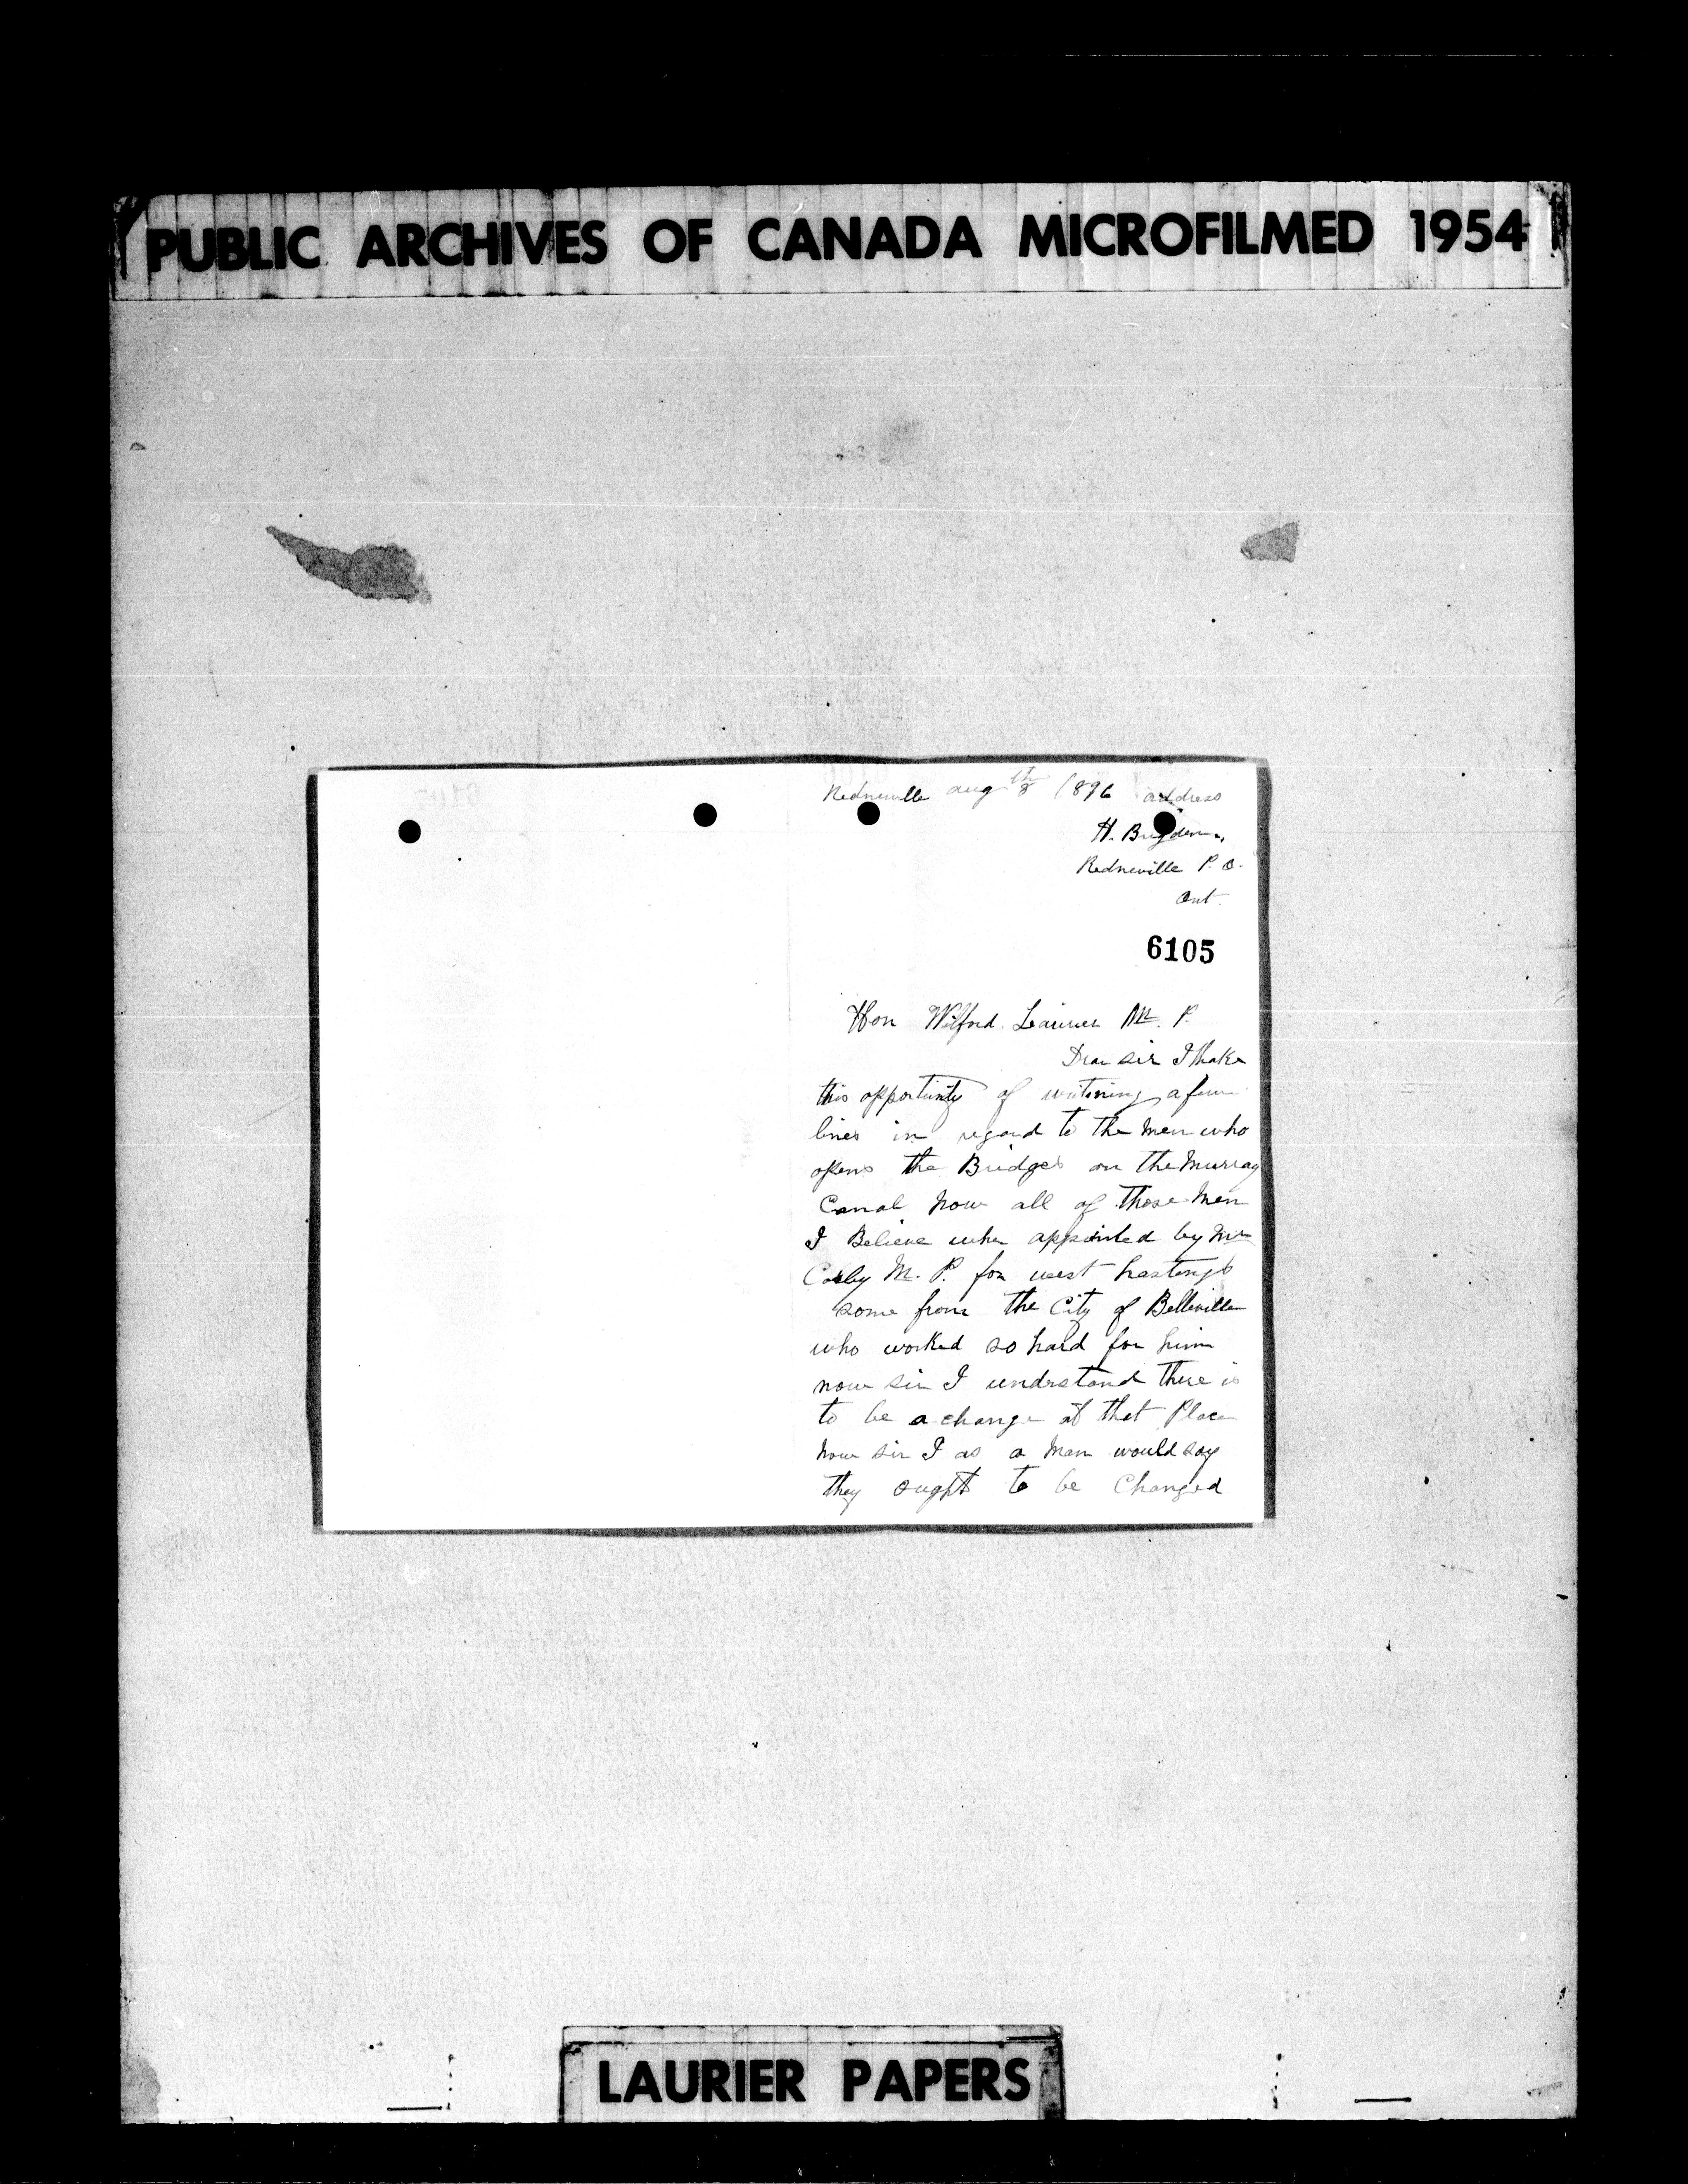 PUBLIC ARCHIVES OF CANADA MICROFILMED 1954
Rednerville aug 8th 1896 address
H. Brigden.,
Rednerville P. O.
Ont.
6105
Hon Wilford. Laurier M. P.
Dear sir I thake
this opportunity of writining a few
lines in regard to the men who
opens the Bridges on the Murray
Canal now all of those men
I Believe wher appointed by Mr
Corby M. P. for west hastings
some from the City of Belleville
who worked so hard for him
now sir I understand there is
to be a change at that Place
now sir I as a man would say
they ought to be Changed
LAURIER PAPERS